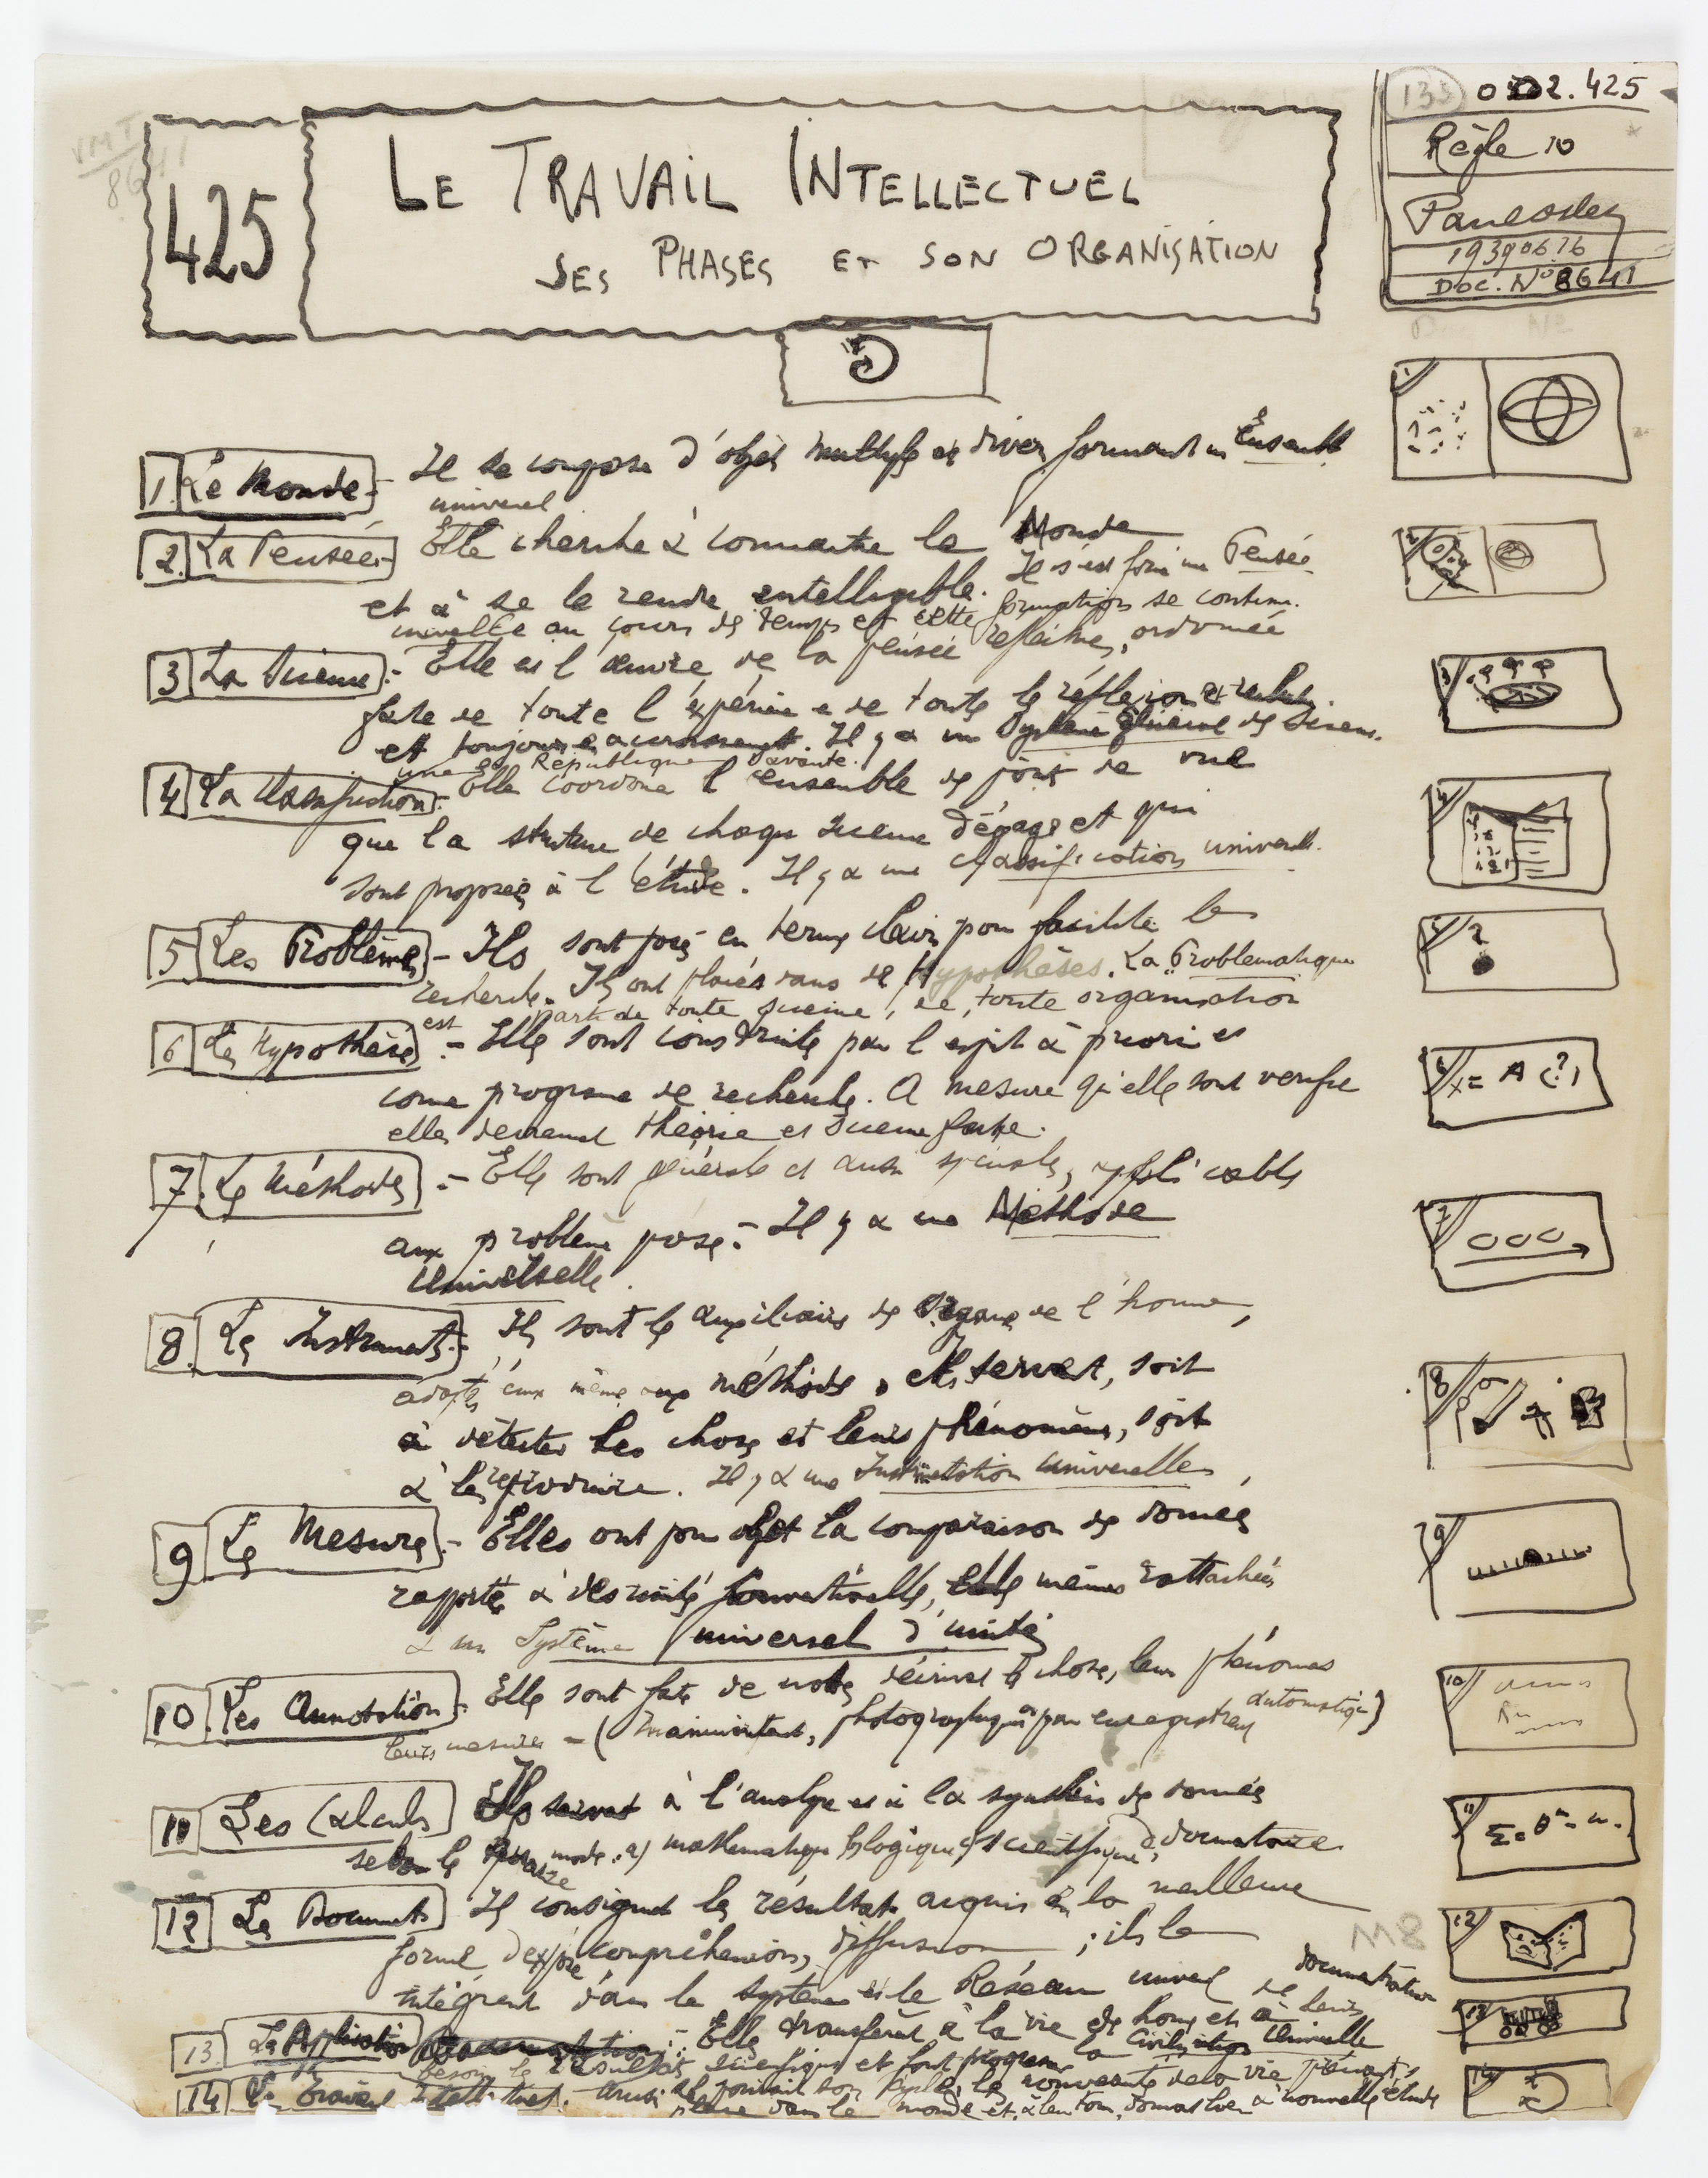 0502.425
Règle 10
19390616
Doc. N° 8641
425
LE TRAVAIL INTELLECTUEL
SES PHASES ET SON ORGANISATION
1. Le Monde - Il se compose d'objets et divers formant un Ensemble
universel
2. La Pensée - Elle cherche à connaitre le Monde
et à se le rendre intelligible. Il s'est formé une Pensée
au cours des temps et cette formation se continue.
3 La Science - Elle est l'oeuvre de la pensée ordonnée
faite de toute l'expérience de toute la réflexion
et toujours en accroissement. Il y a un Système Général des Sciences
une République savante.
4 La Classification - Elle coordonne l'ensemble des points de vue
que la structure de chaque science dégage et qui
sont proposés à l'étude. Il y a une classification universelle.
5 Les Problèmes - Ils sont posés en termes clairs pour faciliter les
recherches. Ils ont placés dans des Hypothèses. La Problematique
est partie de toute science, de toute organisation
6 Les Hypothèses - Elles sont construites par l'esprit à priori et
come programe de recherche. A mesure qu'elles sont verifiées
elles deviennent théorie et science faite.
7. Les Méthodes - Elles sont générales et aussi spéciales, applicables
aux problèmes posés - Il y a une Méthode
Universelle.
8 Les Instruments - Ils sont les auxiliaires des organes de l'homme,
adaptés eux même aux méthodes, et servent, soit
à détecter les choses et leurs phénomènes, soit
à les reproduire. Il y a une Instrumentation universelle,
9 Les Mesures - Elles ont pour objet la comparaison des données
rapportées à des unités conventionelles, elles mêmes rattachées
à un Système universel d'unités
10. Les Annotations - Elles sont faites de notes décrivant les choses, leurs phénomènes
leurs mesures - ( photographiques par enregistreur automatique)
11 Les Calculs Ils servent à l'analyse et à la synthèse des données
selon le mode: a) mathematique b) logique c) scientifique d) documentaire.
12 Les Documents Ils consignent les résultats acquis à la meilleure
forme d'exposé compréhension, diffusion ; ils le
intégrent dans le système et le Réseau univel de documentation
13 Les Applications - Elles transfèrent à la vie des homes et à leurs
besoins les résultats scientifiques et font progresser la Civilisation Universelle
14 Le Travail Intellectuel. - Ainsi
place dans le monde et à leur tour, donnant lieu à nouvelles études
1
2
3
4
5 ?
6 x = A (?)
7
8
9
10
11
12
M8
13
14